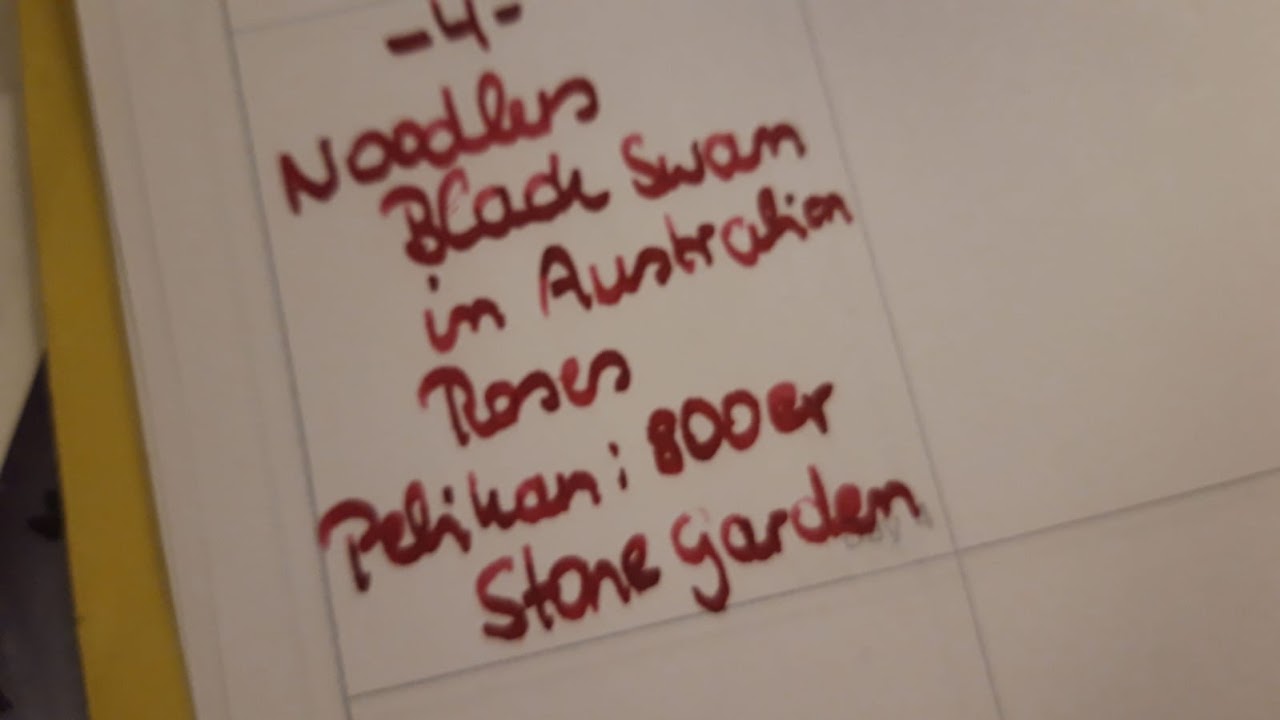 -4-
Noodlers
Black Swan
in Australian
Roses
Pelikan: 800er
Stone garden